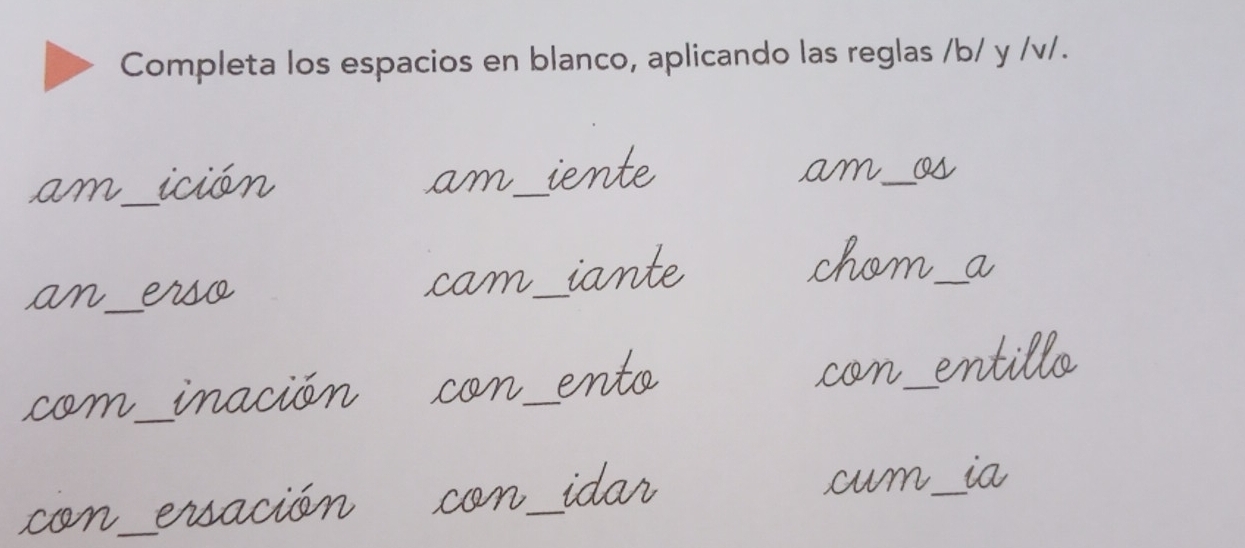 Completa los espacios en blanco, aplicando las reglas /b/ y /v/.
am_ición am_iente am_os
an_erso cam_iante chom_a
com_inación con_ento con_entillo
con_ersación con_idar cum_ia